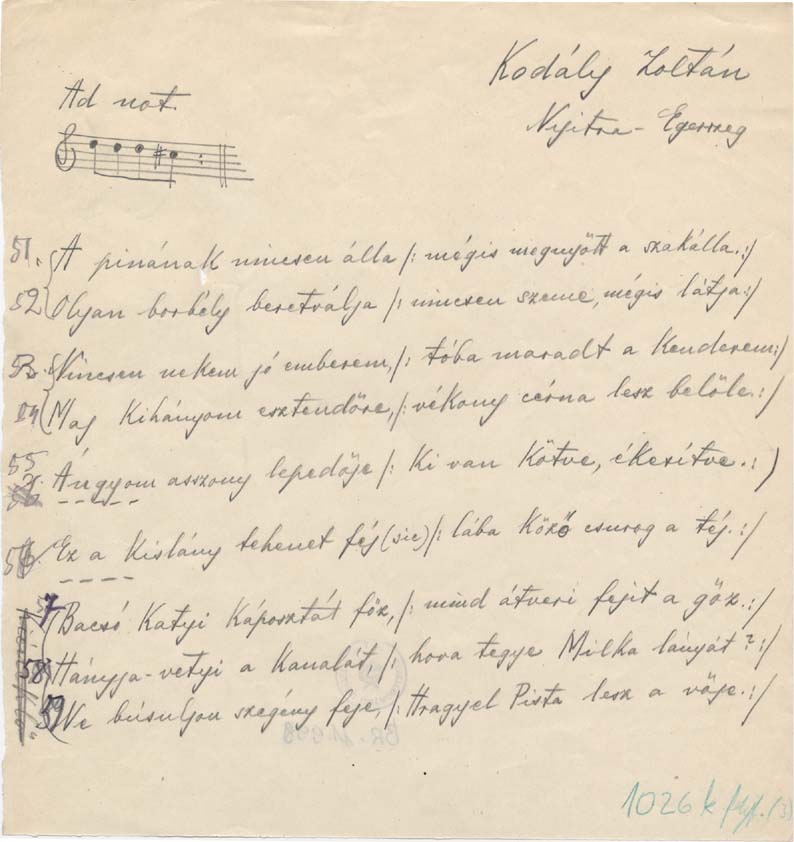 Kodály Zoltán
Ad not.
Nyitra-Egerszeg
51. A pinának nincsen álla /: mégis megnyőtt a szakálla. :/
52 Olyan borbély beretválja /: nincsen szeme, mégis látja :/
53. Nincsen nekem jó emberem, /: tóba maradt a Kenderem :/
54 Maj Kihányom esztendőre, /: vékony cérna lesz belőle. :/
55 Ángyom asszony lepedője /: Ki van Kötve, éKesítve. :)
56. Ez a Kislány tehenet féj (sic) /: lába Köző csurog a téj. :/
7 Bacsó Katyi Káposztát főz, /: mind átveri fejit a gőz. :/
58. Hányja-vetyi a Kanalát, /: hova tegye Milka lányát? :/
59 Ne búsuljon szegény feje, /: Hragyel Pista lesz a vője. :/
BR. 11
1026 k
(3)